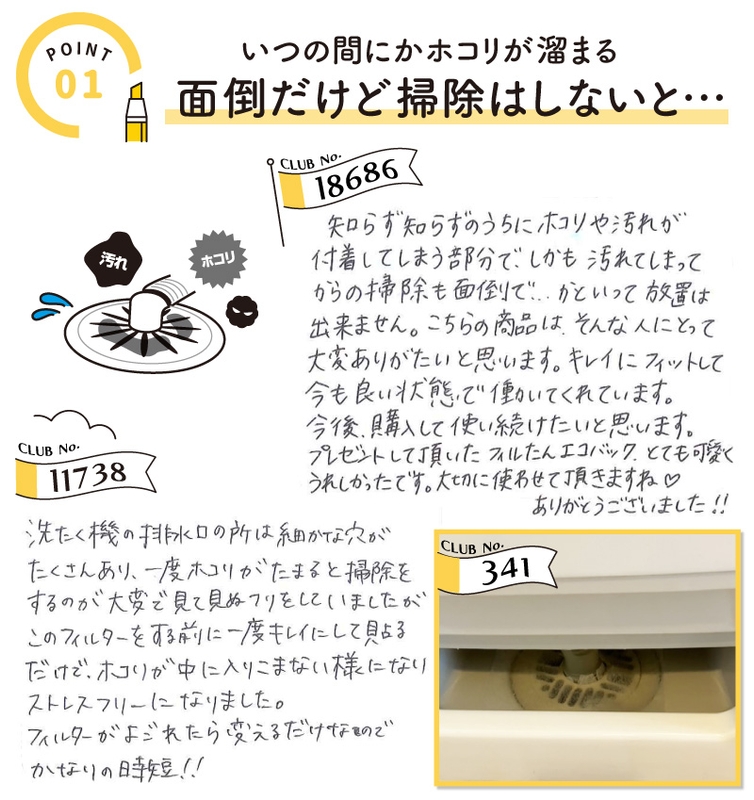 POINT
01
いつの間にかホコリが溜まる
面倒だけど掃除はしないと…
CLUB No.
18686
知らず知らずのうちにホコリや汚れが
付着してしまう部分で、しかも汚れてしまって
からの掃除も面倒で…かといって放置は
出来ません。こちらの商品は、そんな人にとって
大変ありがたいと思います。キレイにフィットして
今も良い状態で働いてくれています。
今後、購入して使い続けたいと思います。
プレゼントして頂いたフィルたんエコバック、とても可愛く
うれしかったです。大切に使わせて頂きますね♡
ありがとうございました!!
汚れ
ホコリ
CLUB No.
11738
洗たく機の排水口の所は細かな穴が
たくさんあり、一度ホコリがたまると掃除を
するのが大変で見て見ぬフリをしていましたが
このフィルターをする前に一度キレイにして貼る
だけで、ホコリが中に入りこまない様になり
ストレスフリーになりました。
フィルターがよごれたら変えるだけなので
かなりの時短!!
CLUB No.
341